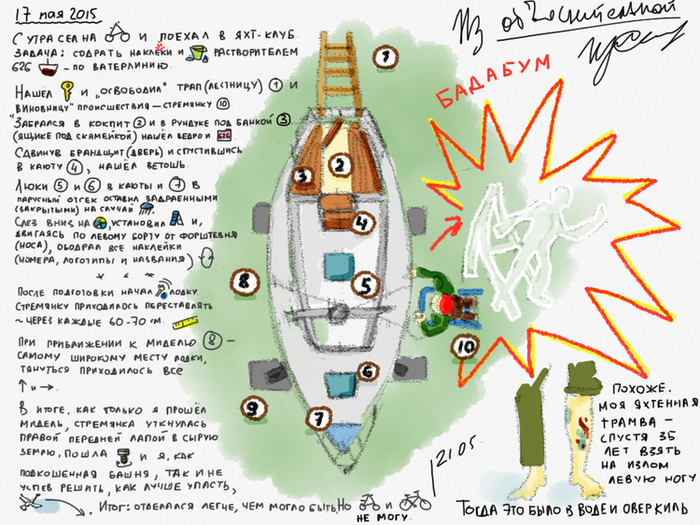 17 мая 2015
С утра сел на и поехал в яхт-клуб.
Задача: содрать наклейки и растворителем
626 - по ватерлинию.
Нашёл и „освободил" трап (лестницу) 1 и
"виновницу" происшествия – стремянку 10
Забрался в кокпит 2 и в рундуке под банкой 3
(ящике под скамейкой) нашёл ведро и
Сдвинув брандщит (дверь) и спустившись
в каюту 4, нашёл ветошь.
Люки 5 и 6 в каюты и 7 в
парусный отсек оставил задраенными
(закрытыми) на случай
Слез вниз на , установил и,
двигаясь по левому борту от форштевня
(носа), ободрал все наклейки
(номера, логотипы и названия)
* * *
После подготовки начал лодку
Стремянку приходилось переставлять
~ через каждые 60-70 см.
При приближении к миделю 8 –
самому широкому месту лодки,
тянуться приходилось все
↑ и →.
В итоге, как только я прошёл
мидель, стремянка уткнулась
правой передней лапой в сырую
землю, пошла и я, как
подкошенная башня, так и не
успев решить, как лучше упасть,
. Итог: отделался легче, чем могло быть, но и
не могу.
21.05.
Из объяснительной
БАДАБУМ
1
2
3
4
5
6
7
8
9
10
Похоже.
Моя яхтенная
трамва –
спустя 35
лет взять
на излом
левую ногу
Тогда это было в воде и оверкиль